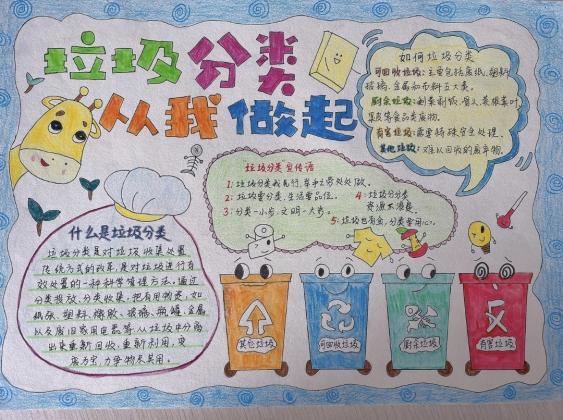 垃圾分类
从我做起
如何垃圾分类
可回收垃圾:主要包括废纸、塑料、
玻璃、金属和布料五大类。
厨余垃圾:剩菜剩饭、骨头、菜根菜叶
果皮等食品类废物。
有害垃圾:需要特殊安全处理。
其他垃圾:难以回收的废弃物。
垃圾分类宣传语
1:垃圾分类我先行,举手之劳处处做。
2:垃圾要分类,生活要品位。
3:分类一小步,文明一大步。
4:垃圾分分类
资源不浪费。
5:垃圾也有家,分类要用心。
什么是垃圾分类
垃圾分类是对垃圾收集处置
传统方式的改革,是对垃圾进行有
效处置的一种科学管理方法。通过
分类投放、分类收集,把有用物资,如
纸张、塑料、橡胶、玻璃、瓶罐、金属
以及废旧家用电器等,从垃圾中分离
出来重新回收、重新利用,变
废为宝,力争物尽其用。
其他垃圾
可回收垃圾
厨余垃圾
有害垃圾